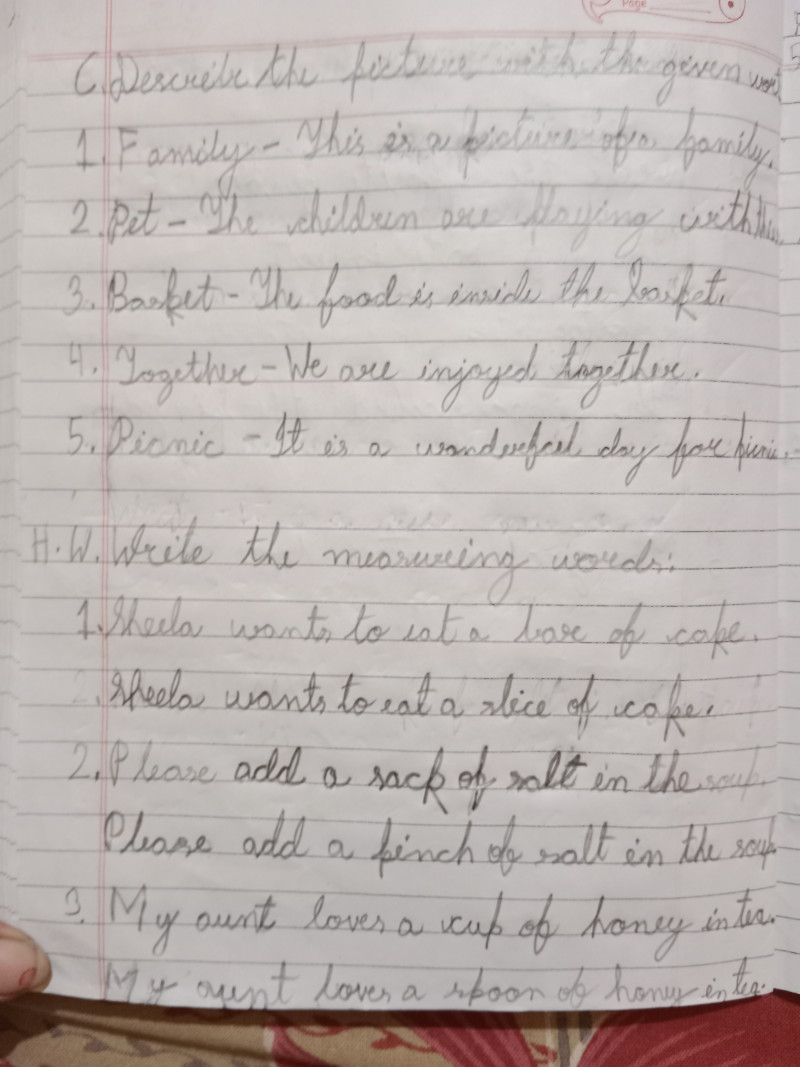 Page
C. Describe the picture with the given
1. Family - This is a picture of a family.
2. Pet - The children are playing with
3. Basket - The food is inside the basket.
4. Together - We are injoyed together.
5. Picnic - It is a wonderful day for picnic.
H.W. Write the measuring words:
1. Sheela wants to eat a bar of cake.
Sheela wants to eat a slice of cake.
2. Please add a sack of salt in the soup.
Please add a pinch of salt in the soup
3. My aunt loves a cup of honey in tea.
My aunt loves a spoon of hony in tea.